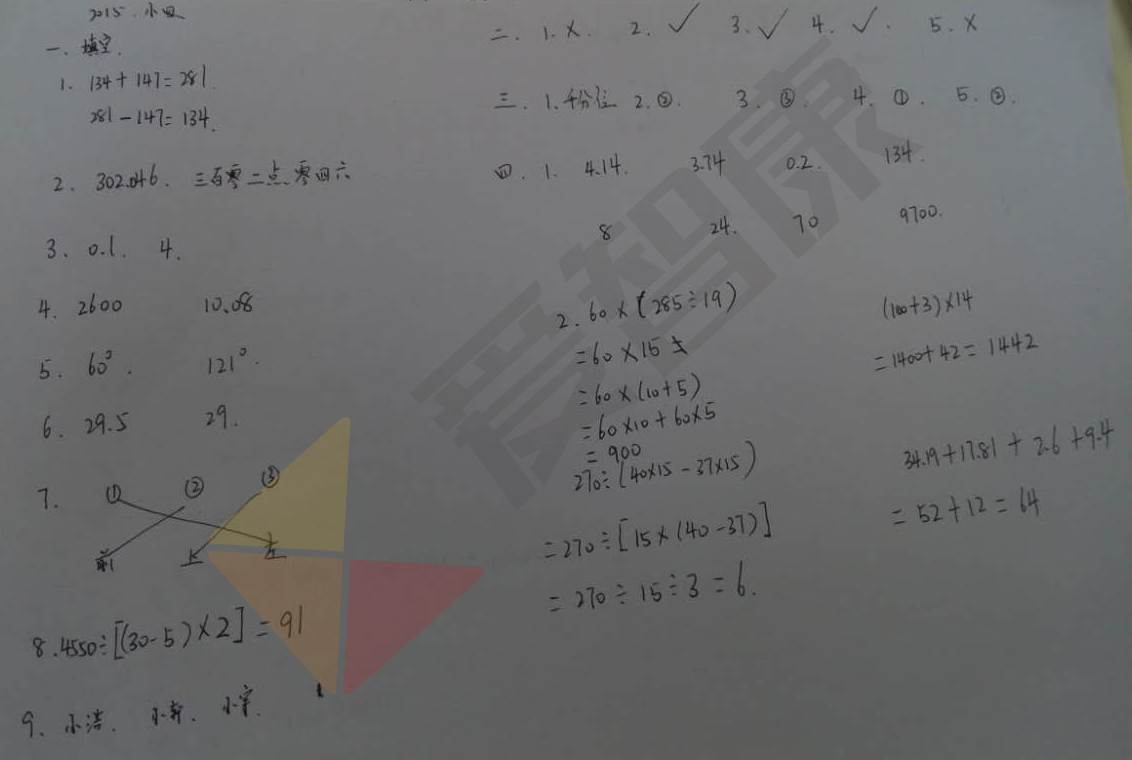 2015. 小四
一. 填空.
1. 134+147=281.
281-147=134.
2. 302.046. 三百零二点零四六
3. 0.1. 4.
4. 2600 10.08
5. 60°. 121°.
6. 29.5 29.
7. ① ② ③
前 上 左
8. 4550÷[(30-5)×2]=91
9. 小洁. 小奔. 小宇.
二. 1. × 2. ✓ 3. ✓ 4. ✓. 5. ×
三. 1. 千分位 2. ②. 3. ③. 4. ①. 5. ②.
四. 1. 4.14. 3.74 0.2. 134.
8 24. 70 9700.
2. 60×(285÷19)
=60×15
=60×(10+5)
=60×10+60×5
=900
270÷(40×15-37×15)
=270÷[15×(40-37)]
=270÷15÷3=6.
(100+3)×14
=1400+42=1442
34.19+17.81+2.6+9.4
=52+12=64
爱智康